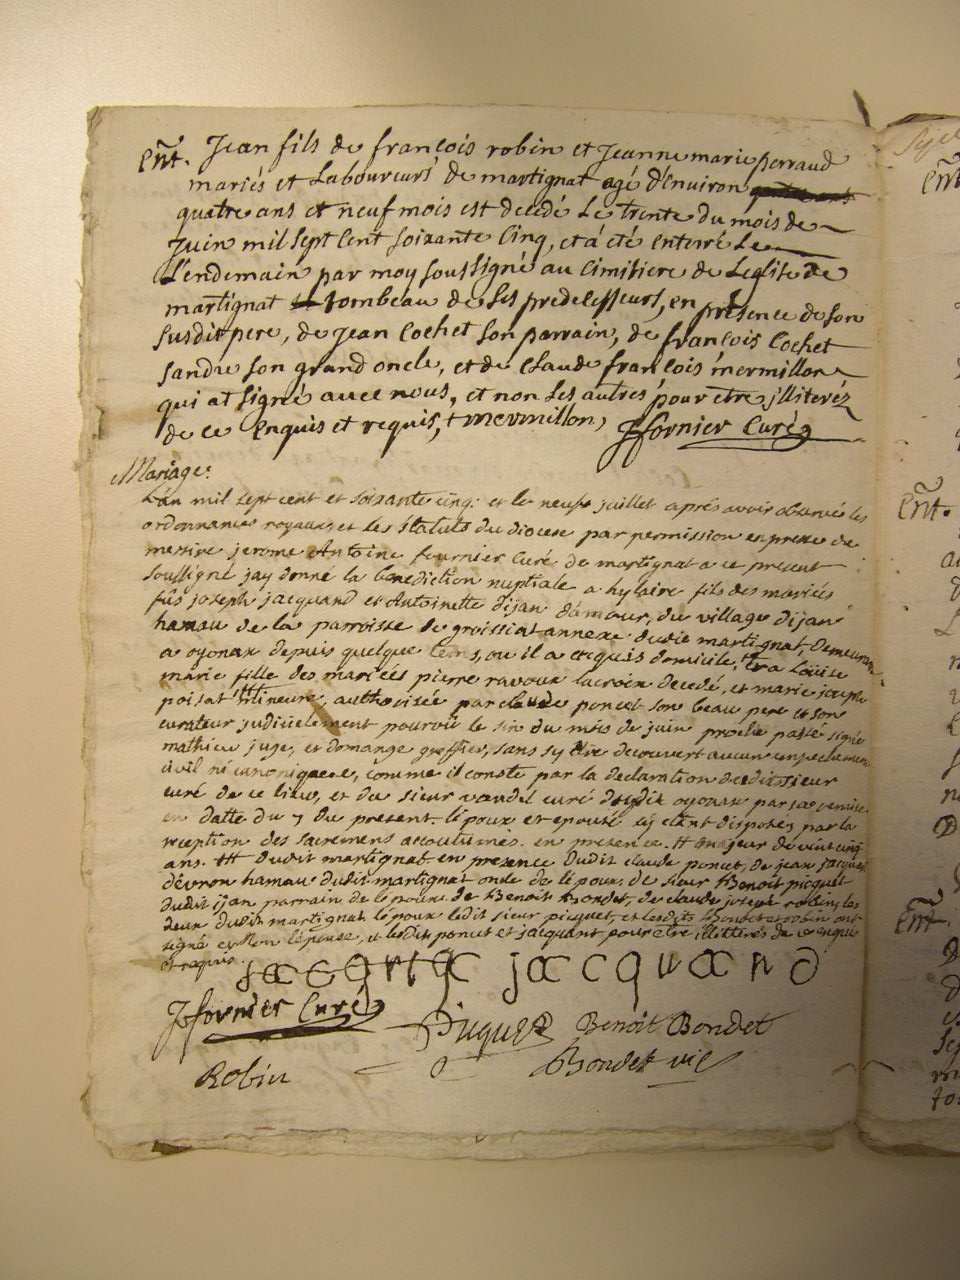 Ent. Jean fils de françois robin et Jeanne marie perraud
mariés et Laboureurs de martignat agé d'environ
quatre ans et neuf mois est decedé Le trente du mois de
Juin mil sept cent soixante cinq, et a été enterré Le
Lendemain par moy soussigné au cimitiere de Leglise de
martignat tombeau de ses predecesseurs, en présence de son
susdit pere, de jean Cochet son parrain, de françois Cochet
sandre son grand oncle, et de Claude françois mermillon
qui at signé avec nous, et non Les autres pour etre jlliteréz
de ce Enquis et requis, + mermillon, Jfornier Curé
Mariage:
L'an mil sept cent et soixante cinq. et le neufs juillet aprés avoir observés les
ordonnances royaux et les statuts du diocese par permission en presce de
messire jerome Antoine fournier curé de martignat a ce present
soussigné jay donné la benediction nuptiale a hylaire fils des mariés
fûs joseph jacquand et Antoinette dijan damour, du village dijan
hamau de la parroisse de groissiat annexe dudit martignat, demeurant
a oyonax depuis quelque tems, ou il a acquis domicile, et a Loüise
marie fille des mariées pierre ravoux lacroix decedé, et marie josephe
poisat mineure, authorisée par claude poncet son beau pere et son
curateur judicielement pourvû le six du mois de juin proche passé signé
mathieu juge, et domange greffier, sans sy etre decouvert aucun empechement
civil ni canonique, comme il conste par la declaration dudit sieur
curé de ce lieu, et du sieur vandel curé dudit oyonax par sa remise
en datte du 7 du present. lépoux et epouse cy etant disposés par la
reception des sacremens accoutumés. en presence. # majeur de vint cinq
ans. ## dudit martignat en presence dudit claude poncet, de jean jacques
dévron hamau dudit martignat oncle de lépoux, de sieur Benoit picquet
dudit ijan parrain de lépoux de Benoit Bondet, de claude joseph robin, les
deux dudit martignat lépoux ledit sieur picquet, et lesdits Bondet et robin ont
signé et non lépouse, et lesdits poncet et jacquant pour etre illitterés de ce enquis
et requis. jacquand
Jfornier Curé Piquet Benoit Bondet
Robin Bondet